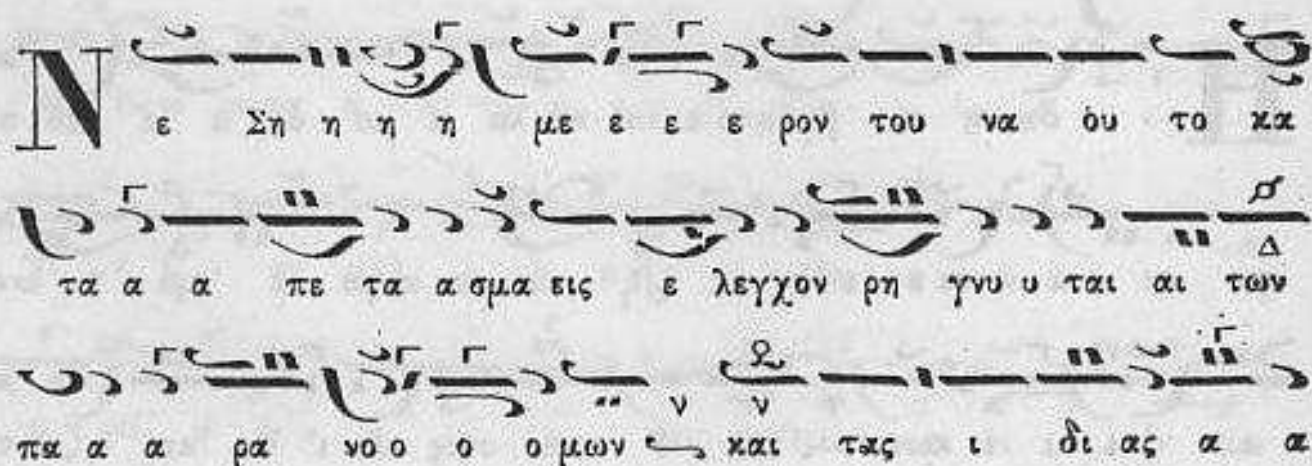 Νε Ση η η η με ε ε ε ρον του να ὁυ το κα
τα α α πε τα α σμα εις ε λεγχον ρη γνυ υ ται αι των
πα α α ρα νο ο ο ο μων και τας ι δι ας α α